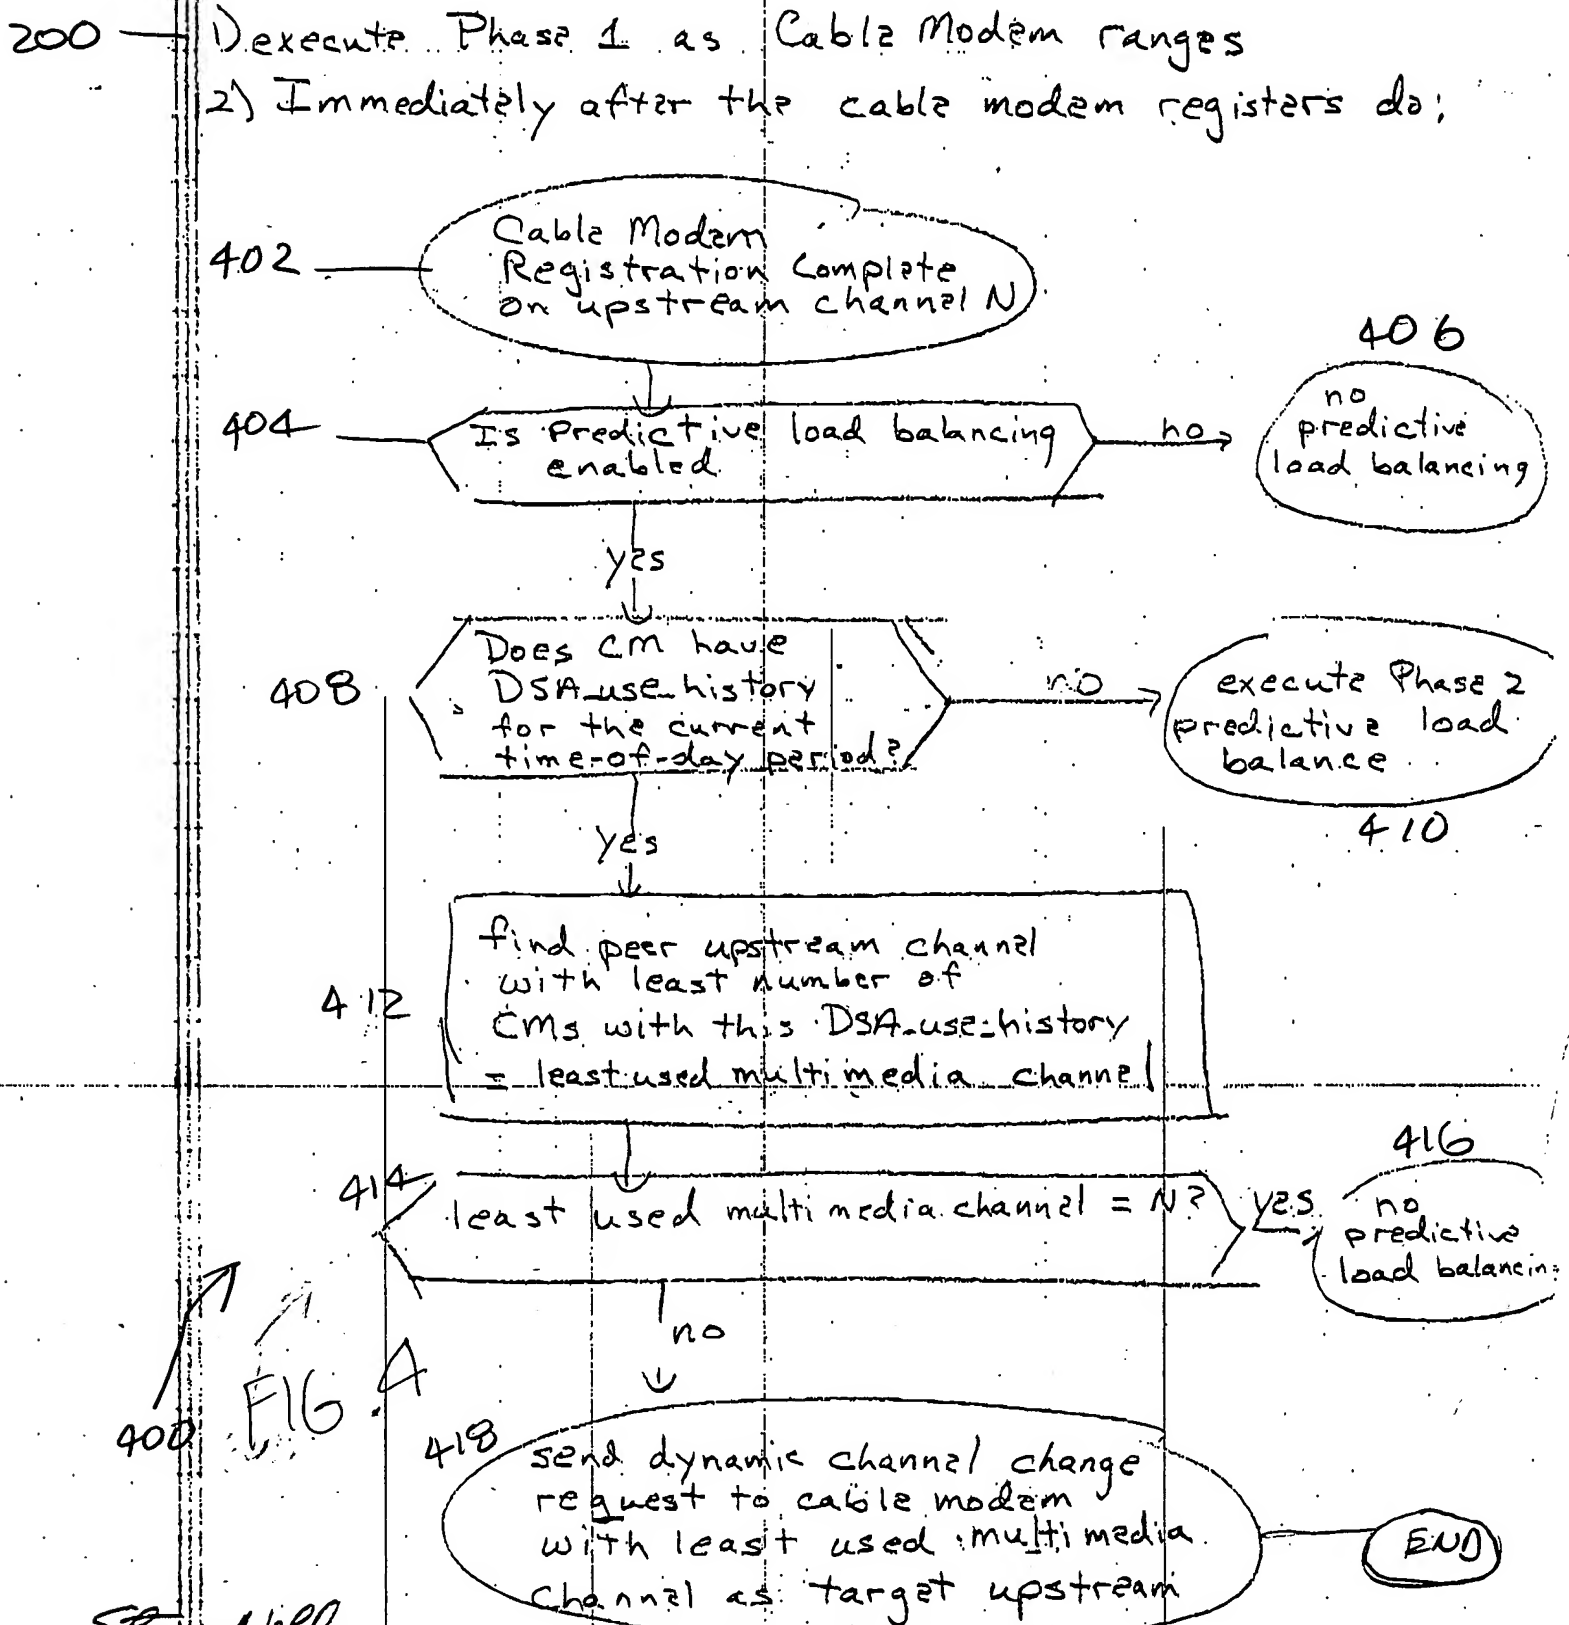 200 1) execute Phase 1 as Cable Modem ranges
2) Immediately after the cable modem registers do:
402
Cable Modem
Registration Complete
on upstream channel N
404
Is Predictive load balancing
enabled
no
406
no
predictive
load balancing
yes
408
Does CM have
DSA_use_history
for the current
time-of-day period?
no
execute Phase 2
predictive load
balance
410
yes
412
find peer upstream channel
with least number of
CMs with this DSA_use_history
= least used multimedia channel
414
least used multimedia channel = N?
yes
416
no
predictive
load balancin
no
400
FIG. 4
418
send dynamic channel change
request to cable modem
with least used multimedia
channel as target upstream
END